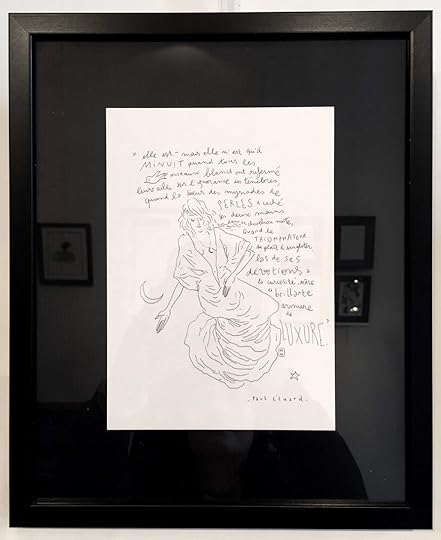 " elle est - mais elle n'est qu'à
MINUIT quand tous les
oiseaux blancs ont refermé
leurs ailes sur l'ignorance des ténèbres,
quand la sœur des myriades de
PERLES a caché
ses deux mains
dans sa chevelure morte,
quand le
TRIOMPHATEUR
se plait à sangloter
las de ses
dévotions à
la curiosité, mâle
et brillante
armure
de
LUXURE. "
. Paul Eluard .